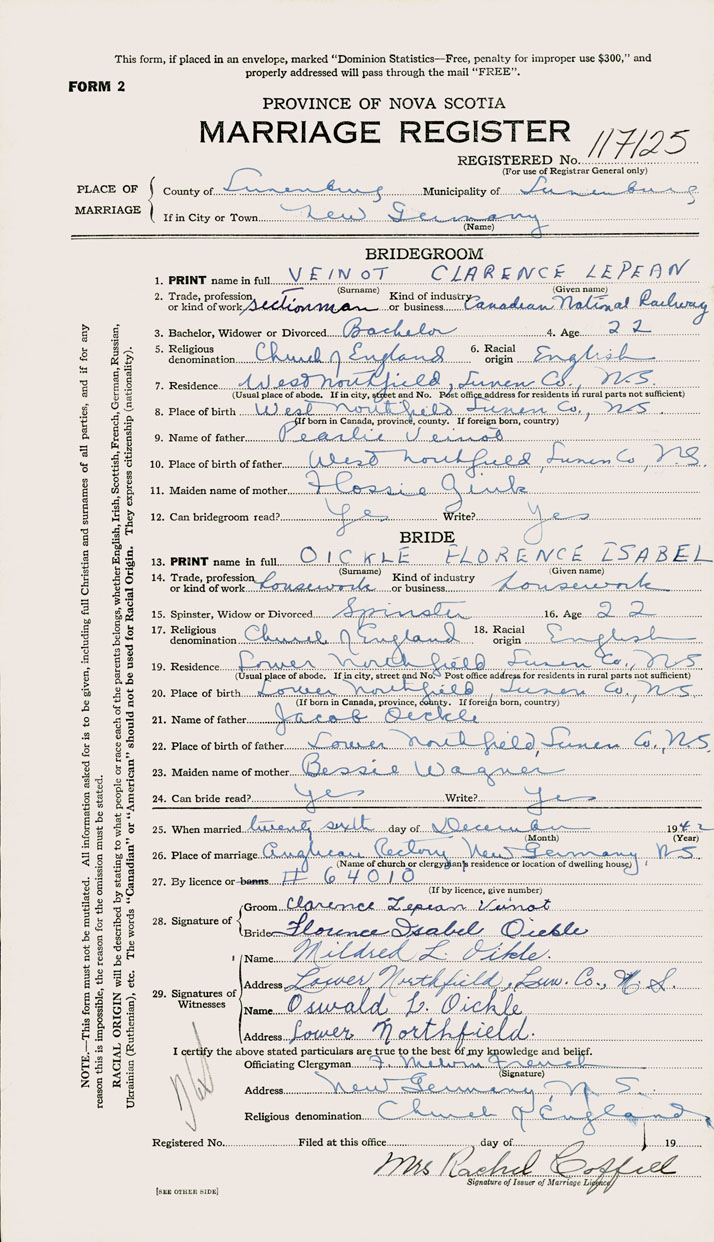 This form, if placed in an envelope, marked "Dominion Statistics—Free, penalty for improper use $300," and
properly addressed will pass through the mail "FREE".
FORM 2
PROVINCE OF NOVA SCOTIA
MARRIAGE REGISTER
REGISTERED No. 117125
(For use of Registrar General only)
PLACE OF MARRIAGE
County of Lunenburg Municipality of Lunenburg
If in City or Town New Germany
(Name)
BRIDEGROOM
1. PRINT name in full VEINOT CLARENCE LEPEAN
(Surname) (Given name)
2. Trade, profession or kind of work sectionman Kind of industry or business Canadian National Railway
3. Bachelor, Widower or Divorced Bachelor 4. Age 22
5. Religious denomination Church of England 6. Racial origin English
7. Residence West Northfield, Lunen Co., N.S.
(Usual place of abode. If in city, street and No. Post office address for residents in rural parts not sufficient)
8. Place of birth West Northfield Lunen Co., N.S.
(If born in Canada, province, county. If foreign born, country)
9. Name of father Pearlie Veinot
10. Place of birth of father West Northfield, Lunen Co, N.S.
11. Maiden name of mother Flossie
12. Can bridegroom read? Yes Write? Yes
BRIDE
13. PRINT name in full OICKLE FLORENCE ISABEL
(Surname) (Given name)
14. Trade, profession or kind of work housework Kind of industry or business housework
15. Spinster, Widow or Divorced Spinster 16. Age 22
17. Religious denomination Church of England 18. Racial origin English
19. Residence Lower Northfield Lunen Co., N.S
(Usual place of abode. If in city, street and No. Post office address for residents in rural parts not sufficient)
20. Place of birth Lower Northfield, Lunen Co., N.S
(If born in Canada, province, county. If foreign born, country)
21. Name of father Jacob Oickle
22. Place of birth of father Lower Northfield, Lunen Co., N.S.
23. Maiden name of mother Bessie Wagner
24. Can bride read? Yes Write? Yes
25. When married twenty sixth day of December 1942
(Month) (Year)
26. Place of marriage Anglican Rectory New Germany N.S.
(Name of church or clergyman's residence or location of dwelling house)
27. By licence or banns # 64010
(If by licence, give number)
28. Signature of
Groom Clarence Lepean Veinot
Bride Florence Isabel Oickle
29. Signatures of Witnesses
Name Mildred L. Oikle.
Address Lower Northfield, Lun. Co., N.S.
Name Oswald L. Oickle
Address Lower Northfield.
I certify the above stated particulars are true to the best of my knowledge and belief.
Officiating Clergyman F. Melvin French
(Signature)
Address New Germany, N.S.
Religious denomination Church of England
Registered No. Filed at this office day of 19
Mrs Rachel Coffill
Signature of Issuer of Marriage Licence
[SEE OTHER SIDE]
NOTE.—This form must not be mutilated. All information asked for is to be given, including full Christian and surnames of all parties, and if for any
reason this is impossible, the reason for the omission must be stated.
RACIAL ORIGIN will be described by stating to what people or race each of the parents belongs, whether English, Irish, Scottish, French, German, Russian,
Ukrainian (Ruthenian), etc. The words "Canadian" or "American" should not be used for Racial Origin. They express citizenship (nationality).